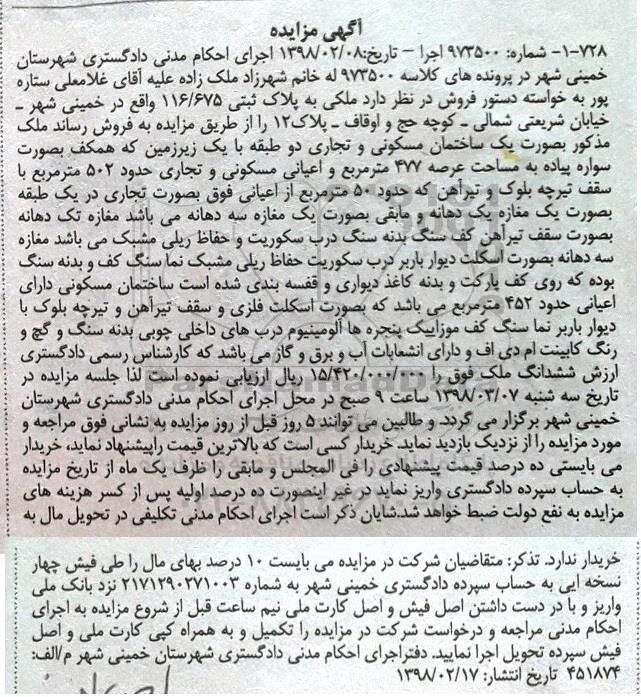 آگهی مزایده
۱-۷۲۸- شماره: ۹۷۳۵۰۰ اجرا – تاریخ:۱۳۹۸/۰۲/۰۸ اجرای احکام مدنی دادگستری شهرستان
خمینی شهر در پرونده های کلاسه ۹۷۳۵۰۰ له خانم شهرزاد ملک زاده علیه آقای غلامعلی ستاره
پور به خواسته دستور فروش در نظر دارد ملکی به پلاک ثبتی ۱۱۶/۶۷۵ واقع در خمینی شهر ـ
خیابان شریعتی شمالی ـ کوچه حج و اوقاف ـ پلاک۱۲ را از طریق مزایده به فروش رساند ملک
مذکور بصورت یک ساختمان مسکونی و تجاری دو طبقه با یک زیرزمین که همکف بصورت
سواره پیاده به مساحت عرصه ۴۷۷ مترمربع و اعیانی مسکونی و تجاری حدود ۵۰۲ مترمربع با
سقف تیرچه بلوک و تیرآهن که حدود ۵۰ مترمربع از اعیانی فوق بصورت تجاری در یک طبقه
بصورت یک مغازه یک دهانه و مابقی بصورت یک مغازه سه دهانه می باشد مغازه تک دهانه
بصورت سقف تیرآهن کف سنگ بدنه سنگ درب سکوریت و حفاظ ریلی مشبک می باشد مغازه
سه دهانه بصورت اسکلت دیوار باربر درب سکوریت حفاظ ریلی مشبک نما سنگ کف و بدنه سنگ
بوده که روی کف پارکت و بدنه کاغذ دیواری و قفسه بندی شده است ساختمان مسکونی دارای
اعیانی حدود ۴۵۲ مترمربع می باشد که بصورت اسکلت فلزی و سقف تیرآهن و تیرچه بلوک با
دیوار باربر نما سنگ کف موزاییک پنجره ها آلومینیوم درب های داخلی چوبی بدنه سنگ و گچ و
رنگ کابینت ام دی اف و دارای انشعابات آب و برق و گاز می باشد که کارشناس رسمی دادگستری
ارزش ششدانگ ملک فوق را ۱۵/۴۲۰/۰۰۰/۰۰۰ ریال ارزیابی نموده است لذا جلسه مزایده در
تاریخ سه شنبه ۱۳۹۸/۰۳/۰۷ ساعت ۹ صبح در محل اجرای احکام مدنی دادگستری شهرستان
خمینی شهر برگزار می گردد. و طالبین می توانند ۵ روز قبل از روز مزایده به نشانی فوق مراجعه و
مورد مزایده را از نزدیک بازدید نماید. خریدار کسی است که بالاترین قیمت راپیشنهاد نماید، خریدار
می بایستی ده درصد قیمت پیشنهادی را فی المجلس و مابقی را ظرف یک ماه از تاریخ مزایده
به حساب سپرده دادگستری واریز نماید در غیر اینصورت ده درصد اولیه پس از کسر هزینه های
مزایده به نفع دولت ضبط خواهد شد.شایان ذکر است اجرای احکام مدنی تکلیفی در تحویل مال به
خریدار ندارد. تذکر: متقاضیان شرکت در مزایده می بایست ۱۰ درصد بهای مال را طی فیش چهار
نسخه ایی به حساب سپرده دادگستری خمینی شهر به شماره ۲۱۷۱۲۹۰۲۷۱۰۰۳ نزد بانک ملی
واریز و با در دست داشتن اصل فیش و اصل کارت ملی نیم ساعت قبل از شروع مزایده به اجرای
احکام مدنی مراجعه و درخواست شرکت در مزایده را تکمیل و به همراه کپی کارت ملی و اصل
فیش سپرده تحویل اجرا نمایید. دفتراجرای احکام مدنی دادگستری شهرستان خمینی شهر م/الف:
۴۵۱۸۷۴ تاریخ انتشار: ۱۳۹۸/۰۲/۱۷